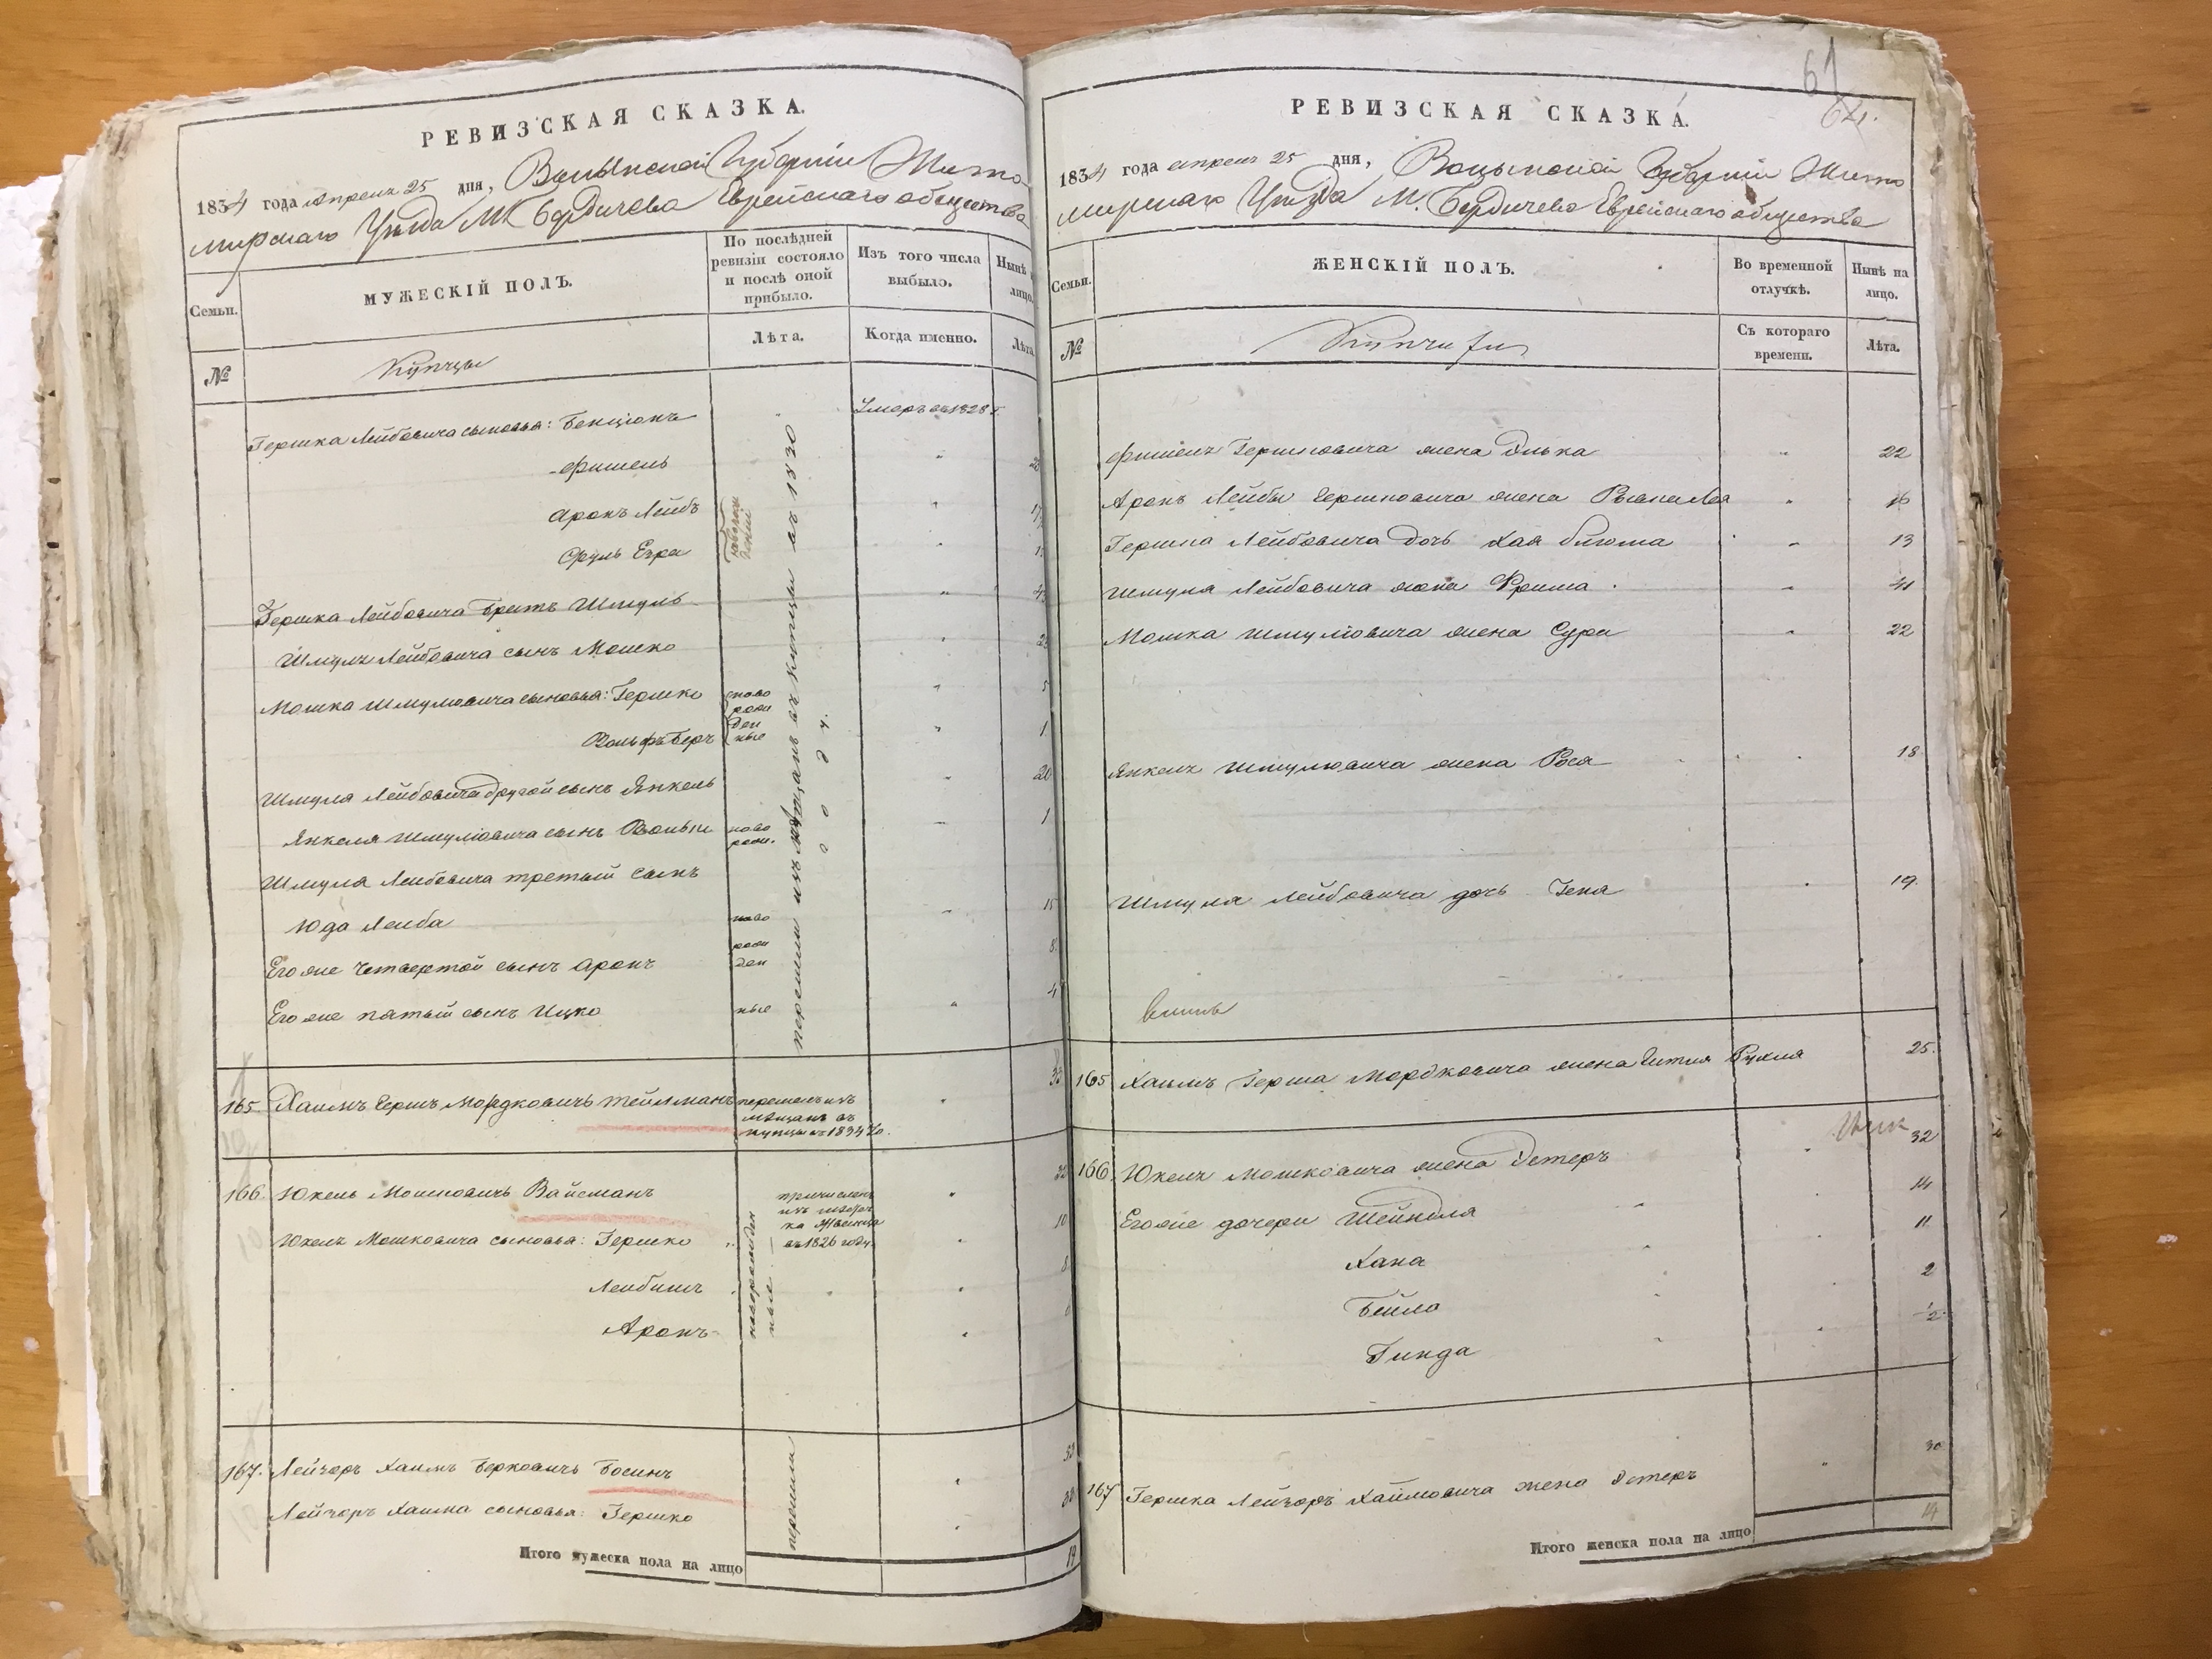 РЕВИЗСКАЯ СКАЗКА.
1834 года апреля 25 дня, Волынской Губерніи Жито
мирскаго Уѣзда М. Бердичева Еврейскаго общества
Семьи.
МУЖЕСКІЙ ПОЛЪ.
По послѣдней ревизіи состояло и послѣ оной прибыло.
Изъ того числа выбыло.
Нынѣ
лицо.
№
Купцы
Лѣта.
Когда именно.
Лѣта
Гершка Лейбовича сыновья: Бенціонъ Умеръ въ 1828 г.
Фишель
Аронъ Лейбъ
Сруль Езра
Гершка Лейбовича братъ Шмуль
Шмуля Лейбовича сынъ Мошко
Мошка Шмулювича сыновья: Гершко ново 5
Вольфъ Беръ ные 1
Шмуля Лейбовича другой сынъ Янкель 20
Янкеля Шмулювича сынъ Волько ново 1
Шмуля Лейбовича третьій сынъ
Юда Лейба ново 15
Его же четвертой сынъ Аронъ ден 8
Его же пятый сынъ Ицко ные 4
перешли изъ мѣщанъ въ купцы въ 1830
году
165. Хаимъ Гершъ Мордковичъ Тейлманъ перешелъ изъ
мѣщанъ въ
купцы въ 1834 го.
166. Юкель Мошковичъ Вайсманъ причисленъ
изъ мѣстеч
ка
въ 1826 году.
Юкеля Мошковича сыновья: Гершко 10
Лейбишъ 8
Аронъ
новорожден
ные
167. Лейзоръ Хаимъ Берковичъ
Лейзоръ Хаима сыновья: Гершко
перешли
Итого мужеска пола на лицо 19
61
РЕВИЗСКАЯ СКАЗКА.
1834 года апреля 25 дня, Волынской Губерніи Жито
мирскаго Уѣзда М. Бердичева Еврейскаго общества
Семьи.
ЖЕНСКІЙ ПОЛЪ.
Во временной отлучкѣ.
Нынѣ на лицо.
№
Съ котораго времени.
Лѣта.
Фишеля Гершковича жена Элька 22
Аронъ Лейбы Гершковича жена 16
Гершка Лейбовича дочь Хая Блюма 13
Шмуля Лейбовича жена Фрима 41
Мошка Шмулювича жена Сура 22
Янкеля Шмулювича жена Рося 18
Шмуля Лейбовича дочь Геня 19.
165 Хаимъ Герша Мордковича жена Рухля 25.
166. Юкеля Мошковича жена Эстеръ 32
Его же дочери Шейндля 14
Хана 11
Бейла 2
Гинда ½
167 Гершка Лейзоръ Хаимовича жена Эстеръ 30
Итого женска пола на лицо 14